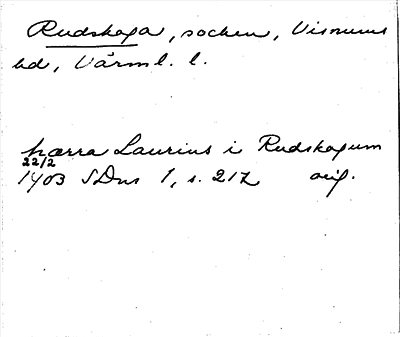 Rudskoga, socken, Visnums
hd, Värml. l.
hærra Laurius i Rudskogum
22/2
1403 SDns 1, s. 217 orig.